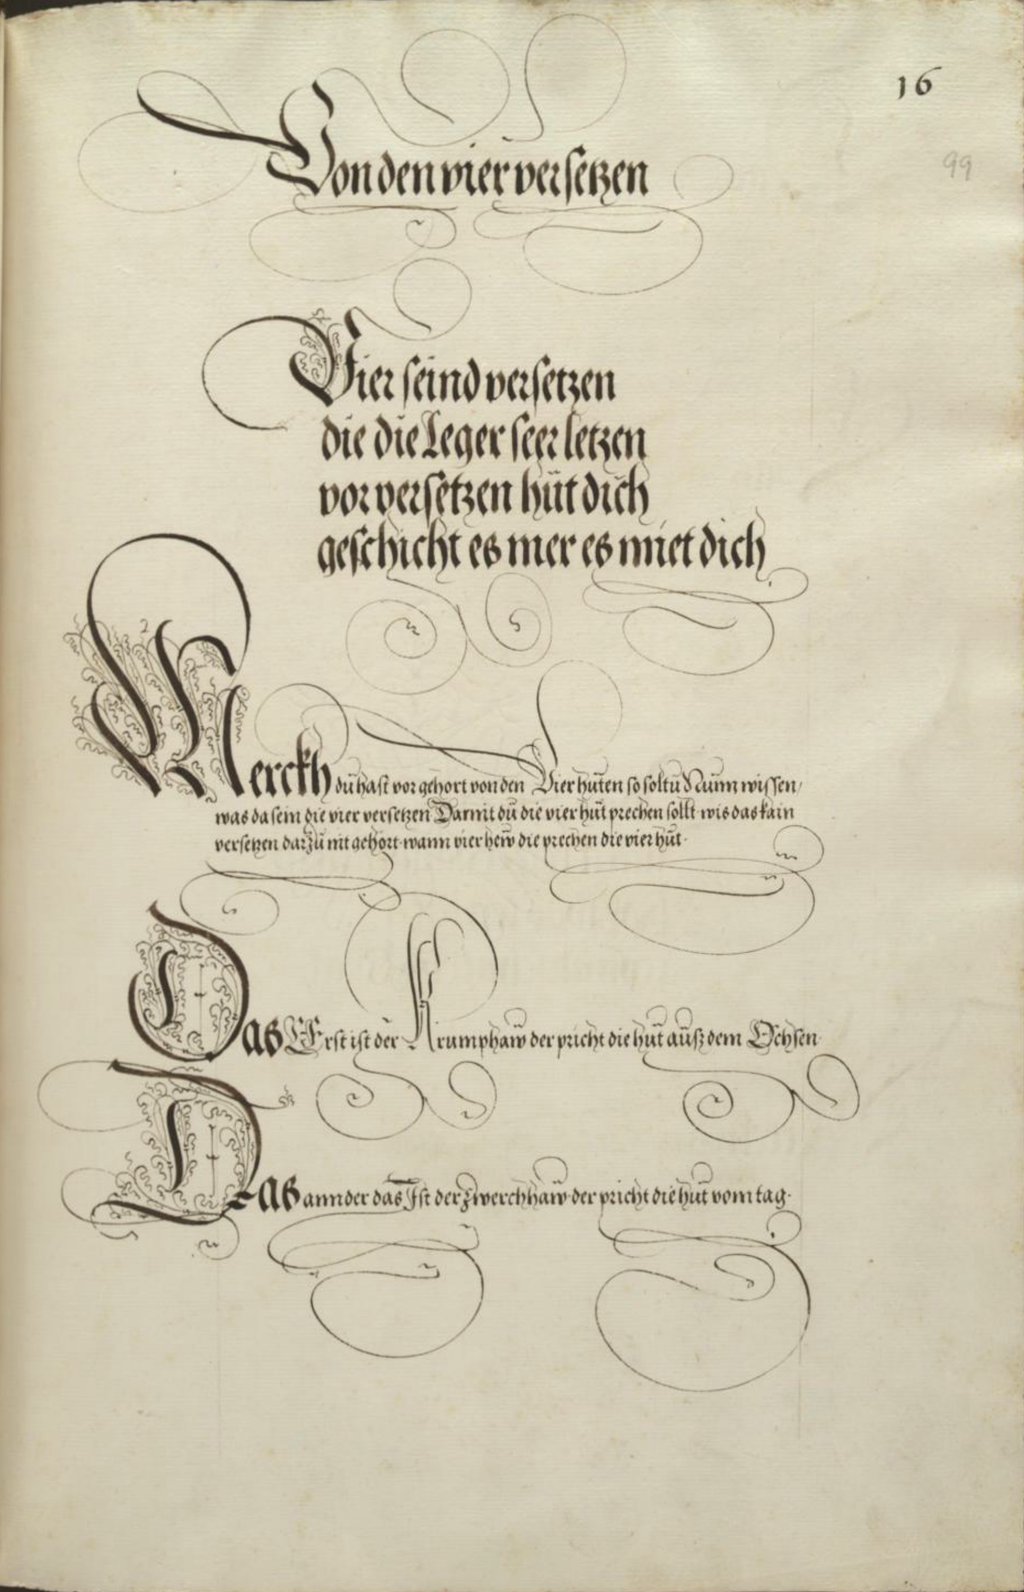 16
99
Von den vier versetzen
Vier seind versetzen
die die Leger seer letzen
vor versetzen hüt dich
geschicht es mer es miet dich
Merckh dü hast vor gehort von den Vier hüten so soltü Nünn wissen
was da sein die vier versetzen Darmit dü die vier hüt prechen sollt · wis das kain
versetzen darzü nit gehört · wann vier hew die prechen die vier hüt ·
Das Erst ist der Krumphaw der pricht die hüt aüß dem Ochsen
Das annder das Ist der zwerchhaw · der pricht die hüt vom tag ·